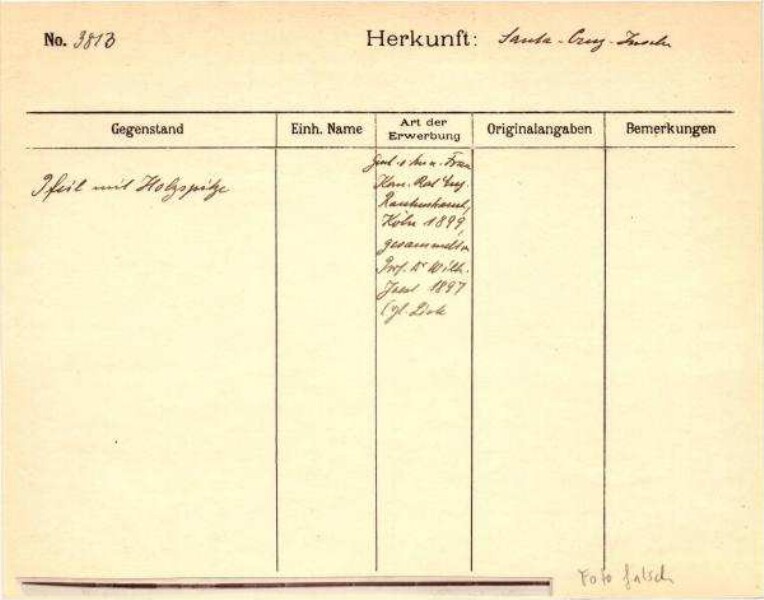 No. 3813 Herkunft: Santa-Cruz-Inseln
Gegenstand Einh. Name Art der Erwerbung Originalangaben Bemerkungen
Pfeil mit Holzspitze
Frau
Kom. Rat Eug.
Rautenstrauch,
Köln 1899,
gesammelt v.
Prof. Dr Wilh.
Joest 1897
(vgl. Liste
Foto falsch